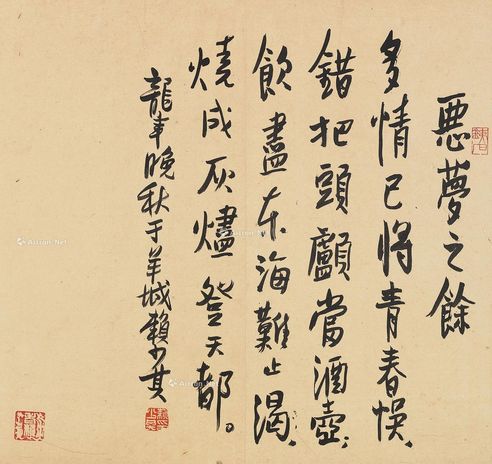 惡夢之餘
多情已將青春悞、
錯把頭顱當酒壺、
飲盡東海難止渴、
燒成灰燼登天都。
龍年晚秋于羊城賴少其